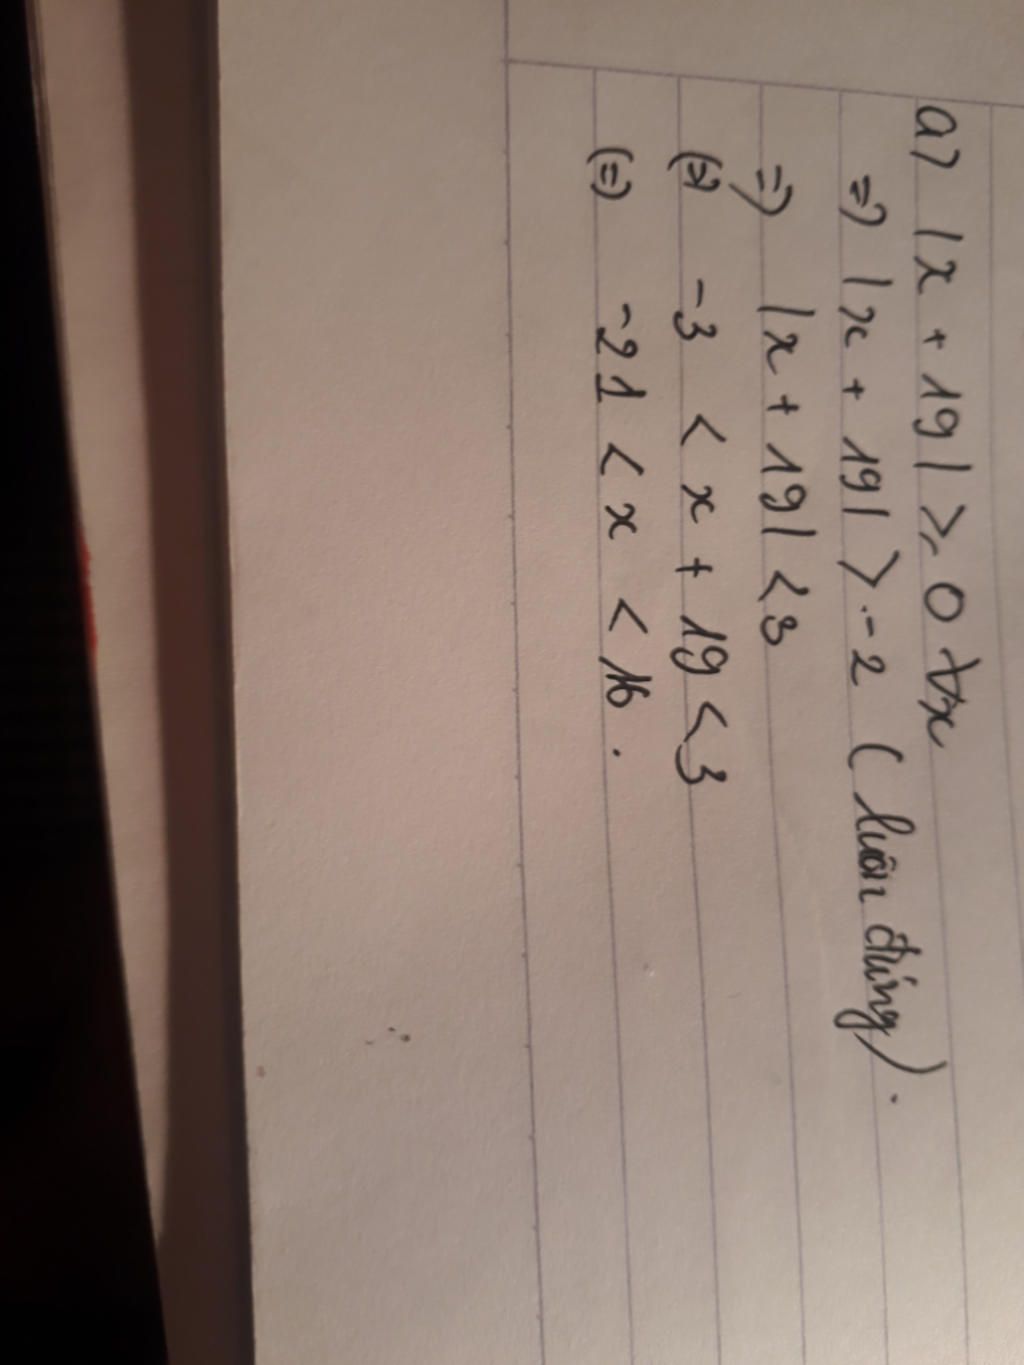 a) |x + 19| ≥ 0 ∀x
=> |x + 19| > -2 (luôn đúng).
=> |x + 19| < 3
(=) -3 < x + 19 < 3
(=) -21 < x < 16.